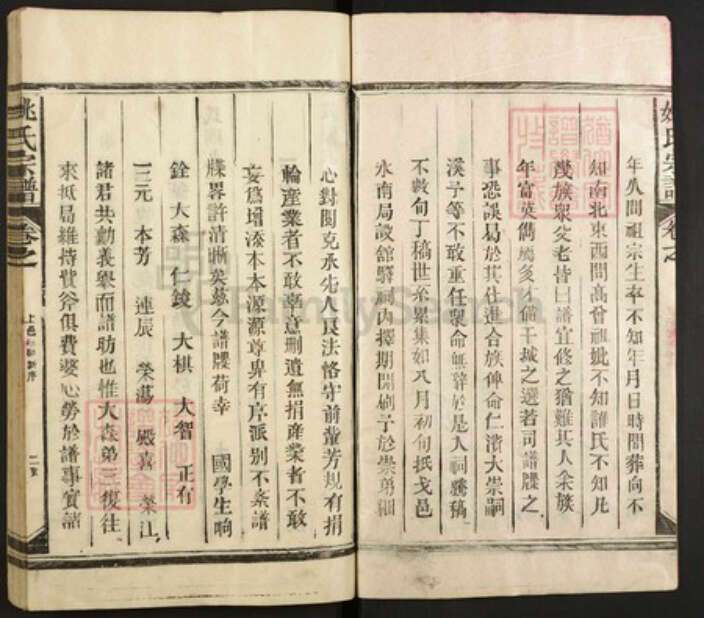 年久問祖宗生卒不知年月日時問葬向不
知南北東西問高曾祖妣不知誰氏不知凡
幾族眾父老皆曰譜宜修之猶難其人余族
年富英儁屬多才倘干城之選若司譜牒之
事恐誤易於其任進合族俾命仁濱大崇嗣
漢予等不敢重任眾命無辭於是入祠謄稿
不數旬丁稿世系累集如八月初旬抵戈邑
永南局設館驛祠內擇期開刷予於崇勇細
心對閱克承先人良法恪守前輩芳規有捐
輪產業者不敢率意刪遺無捐產業者不敢
妄為增添本本源源尊卑有序派別不紊譜
牒界許清晰矣茲今譜牒荷幸 國學生响
銓 大森 仁竣 大棋 大智 正有
三元 本芳 連辰 榮蕩 殿喜 榮江
諸君共勷義舉而譜助也惟大森弟三復往
來抵局維持費斧俱費婆心勞於譜事實諸
姚氏宗譜 卷之
姚氏宗譜 卷之
FamilySearch